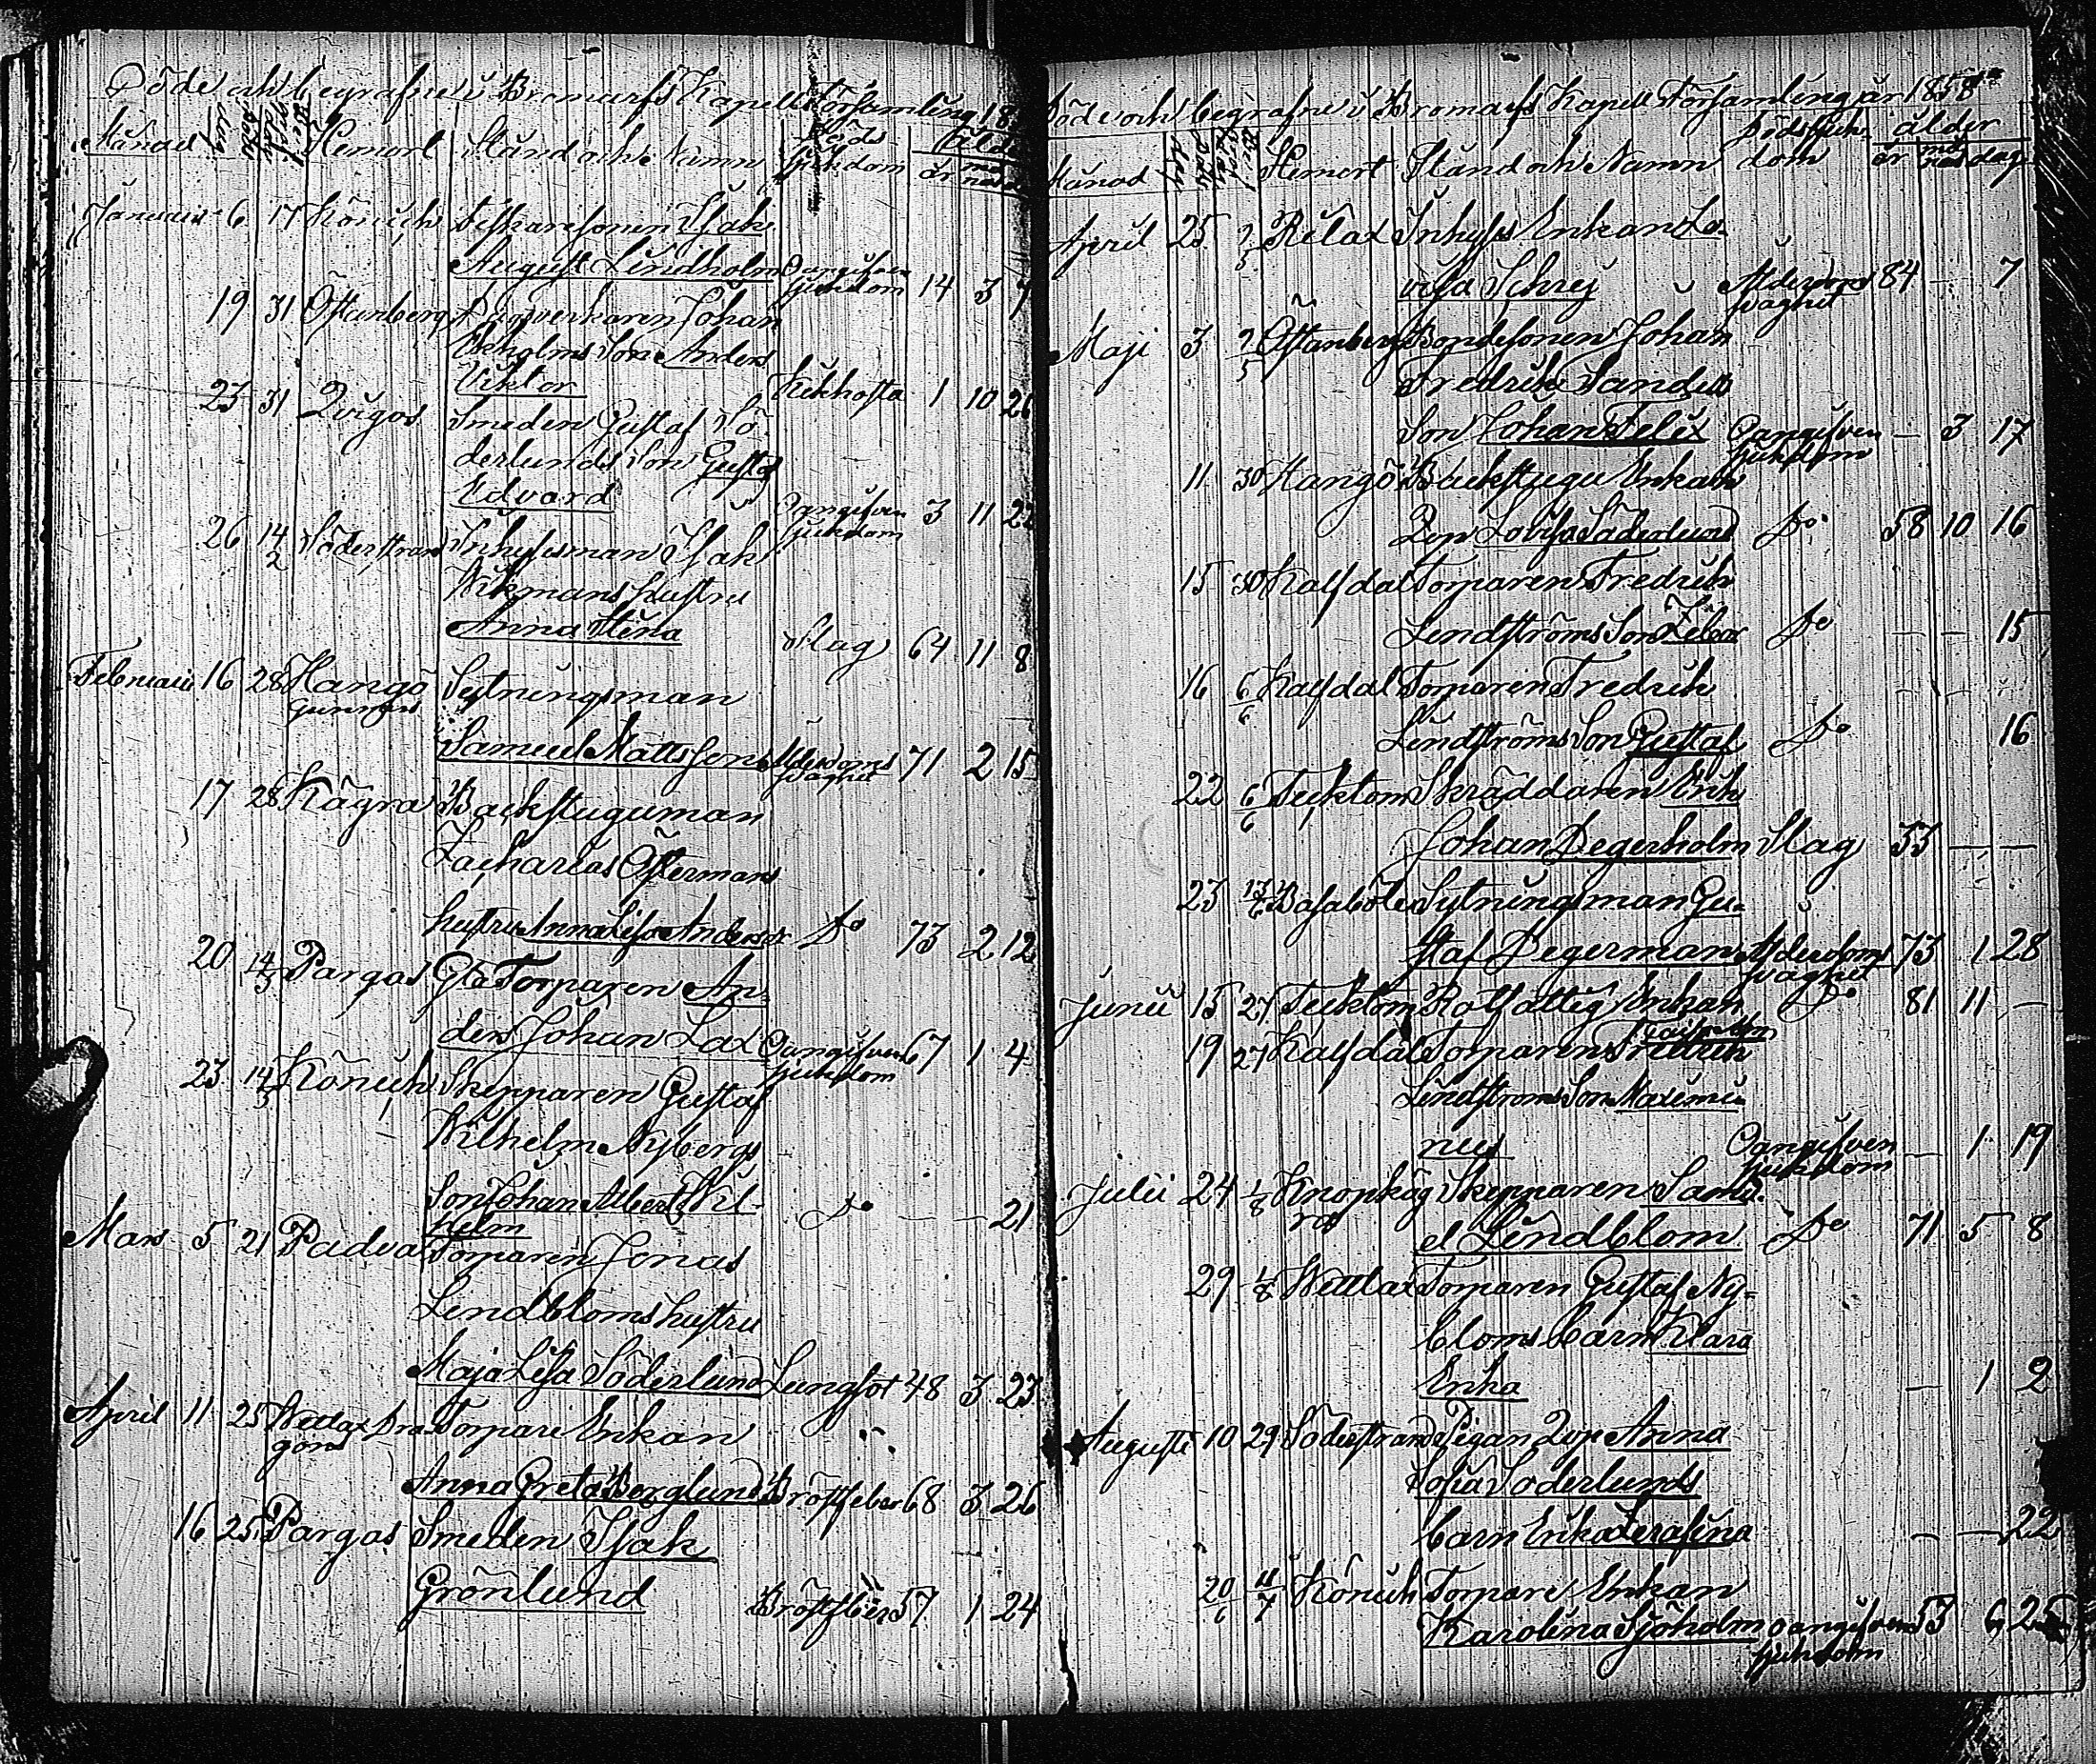 Döde och begrafne i Bromarfs Kapell Församling 18
Månad dag Hemort Stånd och Namn Döds sjukdom Ålder
år
Januari 6 17 Könick Fiskaresonen Isak
August Lindholm Oangifven sjukdom 14 3 7
19 31 Östanberg Johan
Ekholms Son Anders
Viktor Kikhosta 1 10 26
23 31 Qvigos Smeden Gustaf Sö
derlunds Son Gustaf
Edvard Oangifven sjukdom 3 11 22
26 14/2 Söderstrand Inhysesman Isak
Wikmans hustru
Anna Stina Slag 64 11 8
Februari 16 28 Hangö Sytningsman
Samuel Mattsson Ålderdoms svaghet 71 2 15
17 28 Kågra Backstuguman
Zacharias Östermans
hustru Anna Lisa Andersdr Do 73 2 12
20 14/3 Pargas Gla Torparen An=
ders Johan Lax Oangifven sjukdom 67 1 4
23 14/3 Könick Skepparen Gustaf
Wilhelm Nybergs
Son Johan Albert Wil-
helm Do — — 21
Mars 5 21 Padva Torparen Jonas
Lindbloms hustru
Maja Lisa Söderlund Lungsot 48 3 23
April 11 25 Wettlax Torpare Enkan
Anna Greta Berglund Bröstfeber 68 3 26
16 25 Pargas Smeden Isak
Grönlund Bröstfeber 57 1 24
Döde och begrafne i Bromarfs Kapell Församling år 1858
Månad dag Hemort Stånd och Namn Dödssjuk- dom ålder
år dag
April 25 2/5 Rilax Inhyses Enkan Lo-
visa Schrey Ålderdoms svaghet 84 — 7
Maji 3 2/5 Östanberg Bondesonen Johan
Fredrik Sandells
Son Johan Felix Oangifven sjukdom — 3 17
11 30 Hangö Backstugu Enkan
Lovisa Söderlund Do 58 10 16
15 30 Kalfdal Torparen Fredrik
Lindströms Son Do — — 15
16 6/6 Kalfdal Torparen Fredrik
Lindströms Son Gustaf Do 16
22 6/6 Tecktom Skräddaren Erik
Johan Degerholm Slag 53 — —
23 13/6 Basaböle Sytningsman Gu=
staf Degerman Ålderdoms svaghet 73 1 28
Junii 15 27 Tecktom Rotfattig Enkan Do 81 11 —
19 27 Kalfdal Torparen Fredrik
Lindströms Son Maximi-
nus Oangifven sjukdom — 1 19
Julii 24 1/8 Knopskog Skepparen Samu-
el Lindblom Do 71 5 8
29 1/8 Wettlax Torparen Gustaf Ny=
bloms barn Klara
Erika — 1 2
Augusti 10 29 Söderstrand Pigan Anna
Sofia Söderlunds
barn Erika Serafina — — 22
20/6 4/7 Könick Torpare Enkan
Karolina Sjöholm oangifven sjukdom 53 6 25